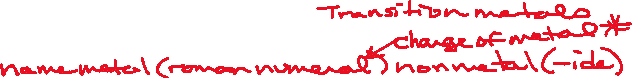 Transition metals
charge of metal*
name metal (roman numeral*) nonmetal (-ide)